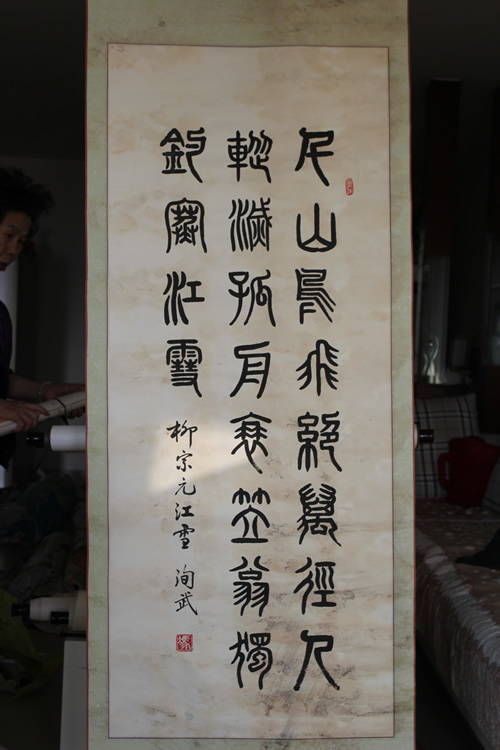 千山鳥飛絕萬徑人
蹤滅孤舟蓑笠翁獨
釣寒江雪
柳宗元江雪 洵武